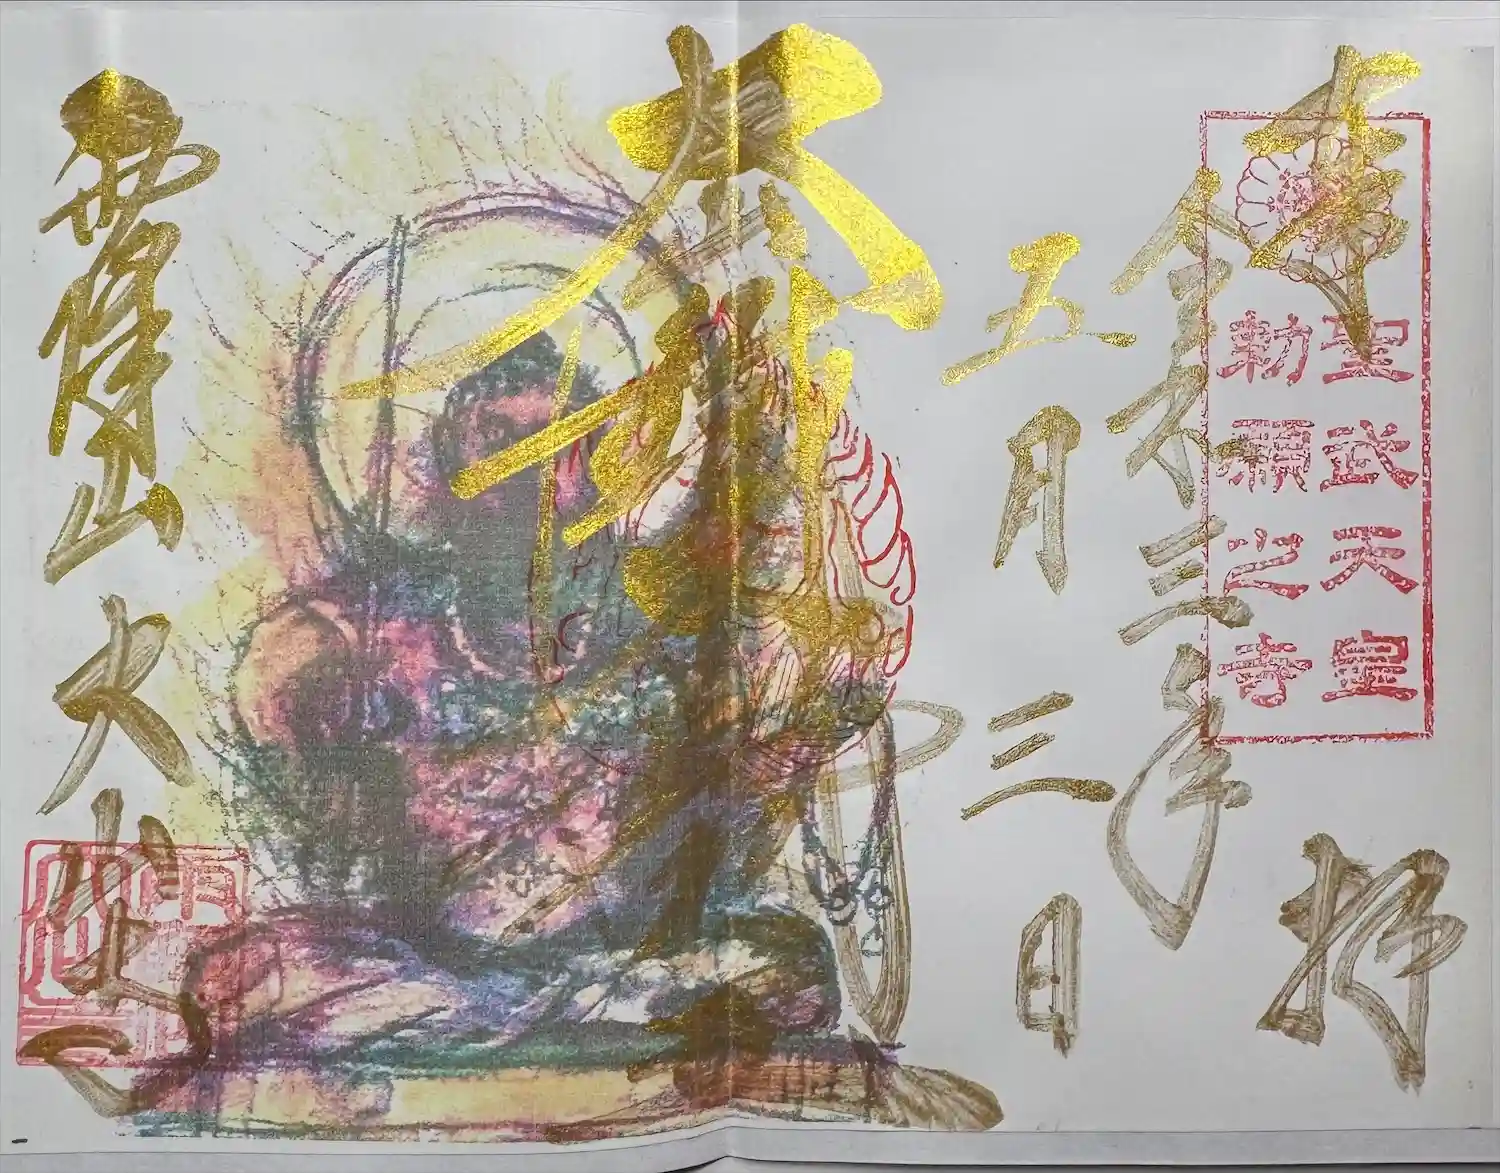 奉拝
聖武天皇
勅願之寺
令和三年
五月三日
雨降山大山寺